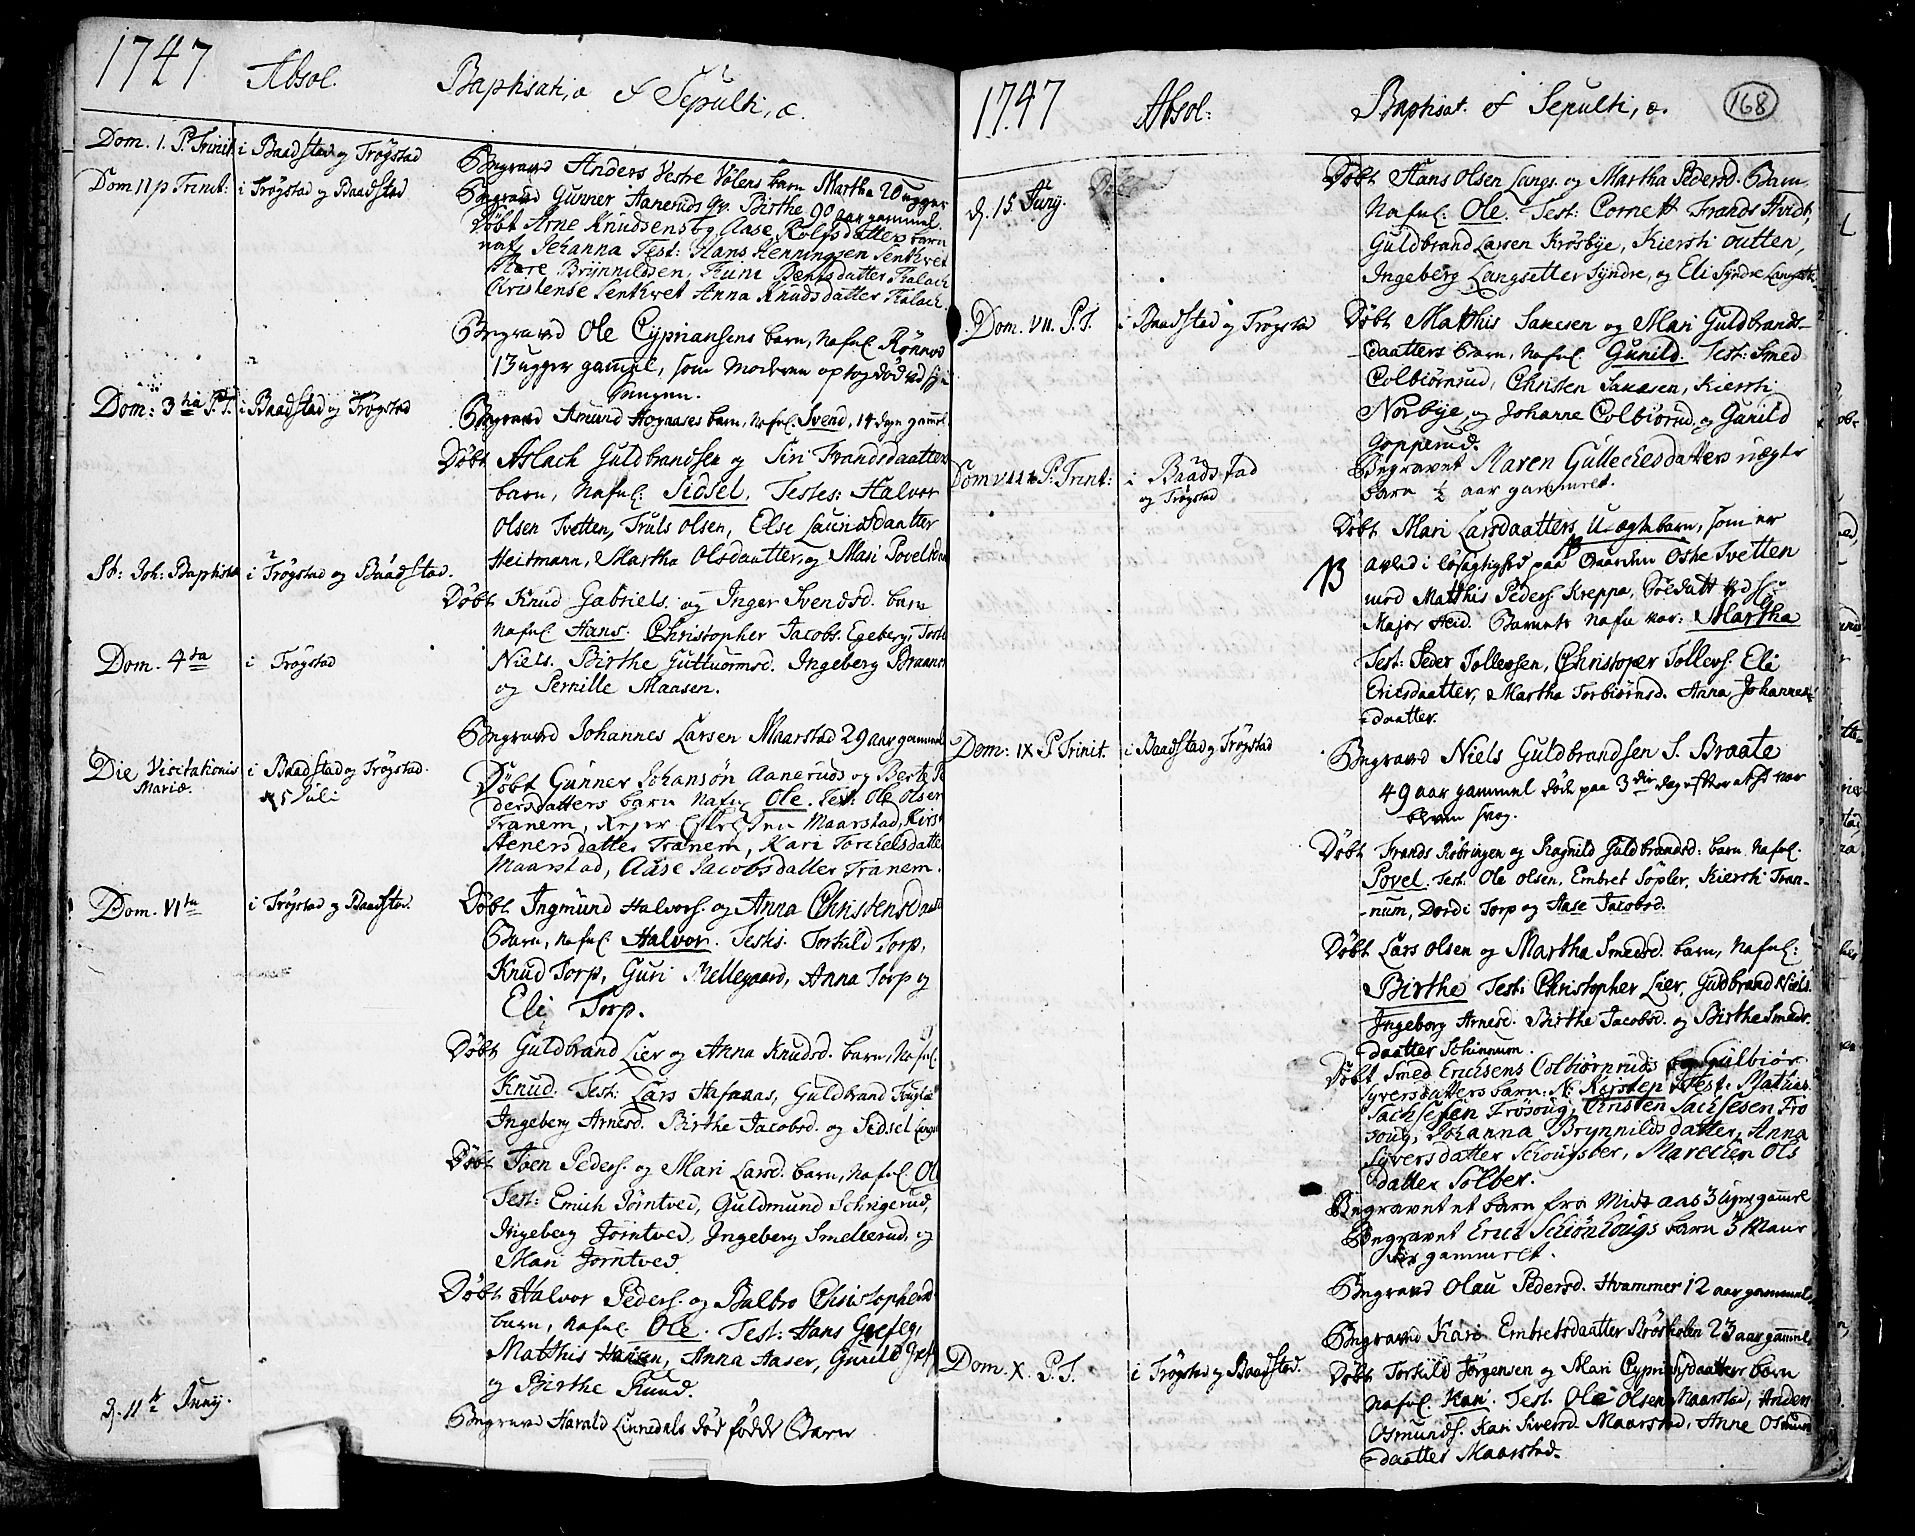 1747
Absol.
Baptisati, æ & Sepulti, æ.
Dom. 1. P. Trinit i Baadstad og Trøgstad
Begravd Anders Vestre Vølens barn Martha 20 ugger
Dom II p Trinit: i Trøgstad og Baadstad
Begravd Gunner Aaneruds qv. Birthe 90 aar gammel.
Døbt Arne Knudsens og Aase Rolfsdatters barn
naf. Johanna Test: Hans Henningsen Senkvet
Brynnildsen, Bentsdatter Kalach
Christense Senkvet Anna Knudsdatter Kalach.
Begravd Ole Cypriansens barn, nafnl. Rønnov
13 ugger gammel, som moderen optog død ved sin
Sengen.
Dom: 3tia P. T. i Baadstad og Trøgstad
Begravd Amund Hognases barn, nafnl. Svend, 14 dage gamml.
Døbt Aslach Guldbrandsen og Siri Frandsdaatters
barn, nafnl: Sidsel. Testes: Halvor
Olsen Tvetten, Truls Olsen, Else Lauritsdaatter
Heitmann, Martha Olsdaatter, og Mari Povelsdaa
St: Joh: Baptistæ i Trøgstad og Baadstad.
Døbt Knud Gabriels. og Inger Svendsd. barn
nafnl Hans. Christopher Jacobs. Egeberg,
Dom. 4ta i Trøgstad
Niels. Birthe Guttuormsd. Ingeberg Braanes
og Pernille Maasen.
Begravd Johannes Larsen Maarstad 29 aar gammel
Die Visitationis i Baadstad og Trøgstad.
Mariæ.
5 Juli
Døbt Gunner Johansøn Aaneruds og Berte Pe
dersdatters barn nafnl Ole. Test: Ole Olsen
Tranem, Maarstad, Kirst
Aenersdatter Tranem, Kari Torckelsdatter
Maarstad, Aase Jacobsdatter Tranem.
Dom. VIta i Trøgstad og Baadstad.
Døbt Ingmund Halvors. og Anna Christensdaatt
Barn, nafnl. Halvor. Testes. Torkild Torp,
Knud Torp, Guri Mellegaard, Anna Torp og
Eli Torp.
Døbt Guldbrand Lier og Anna Knudsd. barn, nafnl.
Knud. Test: Lars Hafnaas, Guldbrand
Ingeberg Arnesd. Birthe Jacobsd. og Sidsel
Døbt Joen Peders. og Mari Larsd. barn, nafnl Ol
Test: Emich Jørntved, Guldmund Schrigerud,
Ingeberg Jørntved, Ingeberg Smellerud, og
Mari Jørntved.
Døbt Halvor Peders. og Balbro Christophersd
barn, nafnl. Ole. Test: Hans Grefslj,
Matthis Hansen, Anna Aaser, Gunild Gref
og Birthe Rund.
d. 11te Juny.
Begravd Harald Linnedals død fødde Barn
1747
Absol:
Baptisat. & Sepulti, æ.
168
d. 15 Juny.
Døbt Hans Olsen Langs. og Martha Pedersd. Barn
Nafnl: Ole. Test: Cornett Frands Hvidt,
Guldbrand Larsen Krosbye, Kiersti Outten,
Ingeberg Langsetter Syndre, og Eli Syndre Langsett
Dom. VII. P. T. i Baadstad og Trøgstad
Døbt Matthis Saxesen og Mari Guldbrands-
daatters Barn, nafnl. Gunild. Test: Smed
Colbiørnrud, Christen Saxesen, Kiersti
Norbye, og Johanne Colbiørud, og Gunild
Gopperud.
Dom VIII P. Trinit: i Baadstad
og Trøgstad
Begravet Maren Gullechesdatters uægte
barn ½ aar gammelt.
Døbt Mari Larsdaatters Uægte barn, som er
13 avlad i løsagtighed paa Gaarden Oshe Tvetten
med Matthis Peders. Kreppa, Soldatt ved Hr
Major Heid. Barnets nafn var: Martha
Test: Peder Tollevsen, Christopher Tollevs. Eli
Ericsdaatter, Martha Torbiørnsd. Anna Johannes-
daatter.
Dom: IX P Trinit. i Baadstad og Trøgstad
Begravd Niels Guldbrandsen S. Braate
49 aar gammel døde paa 3die dag efter at had var
bleven svag.
Døbt Frands Røbringen og Ragnild Guldbrandsd: barn nafnl.
Povel. Test: Ole Olsen, Embret Søpler, Kiersti Tran-
num, Dordi Torp og Aase Jacobsd.
Døbt Lars Olsen og Martha Smedsd. barn, nafnl:
Birthe Test: Christopher Lier, Guldbrand Niels.
Ingeborg Arnesd. Birthe Jacobsd. og Birthe Smeds-
daatter Schinnum.
Døbt Smed Ericksens Colbiørnruds og Gulbiør
Syversdatters barn. N. Kirsten Test: Matias
Sachsesen Frøsoug, Christen Sachsesen Frø
soug, Johanna Brynnildsdatter, Anna
Syversdatter Schougsber, Marechen Ols
datter Solber.
Begravet et barn fra Midt aas 3 ugre gammel
Begravet Erich Schiønhougs barn 3
gammelt.
Begravd Olau Pedersd. Hvammer 12 aar gammel,
Begravd Kari Embretsdaatter Brøsholen 23 aar gamml
Dom. X. P. T. i Trøgstad og Baadstad.
Døbt Torkild Jørgensen og Mari Cypriansdaatter barn
nafnl. Kari. Test: Ole Olsen Maarstad, Anders
Osmunds. Kari Siversd. Maarstad, Anne Osmunds
daatter Maarstad.